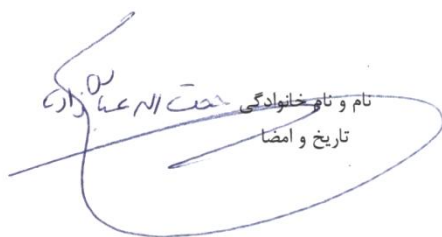 نام و نام خانوادگی حجت اله عباس زاده
تاریخ و امضا